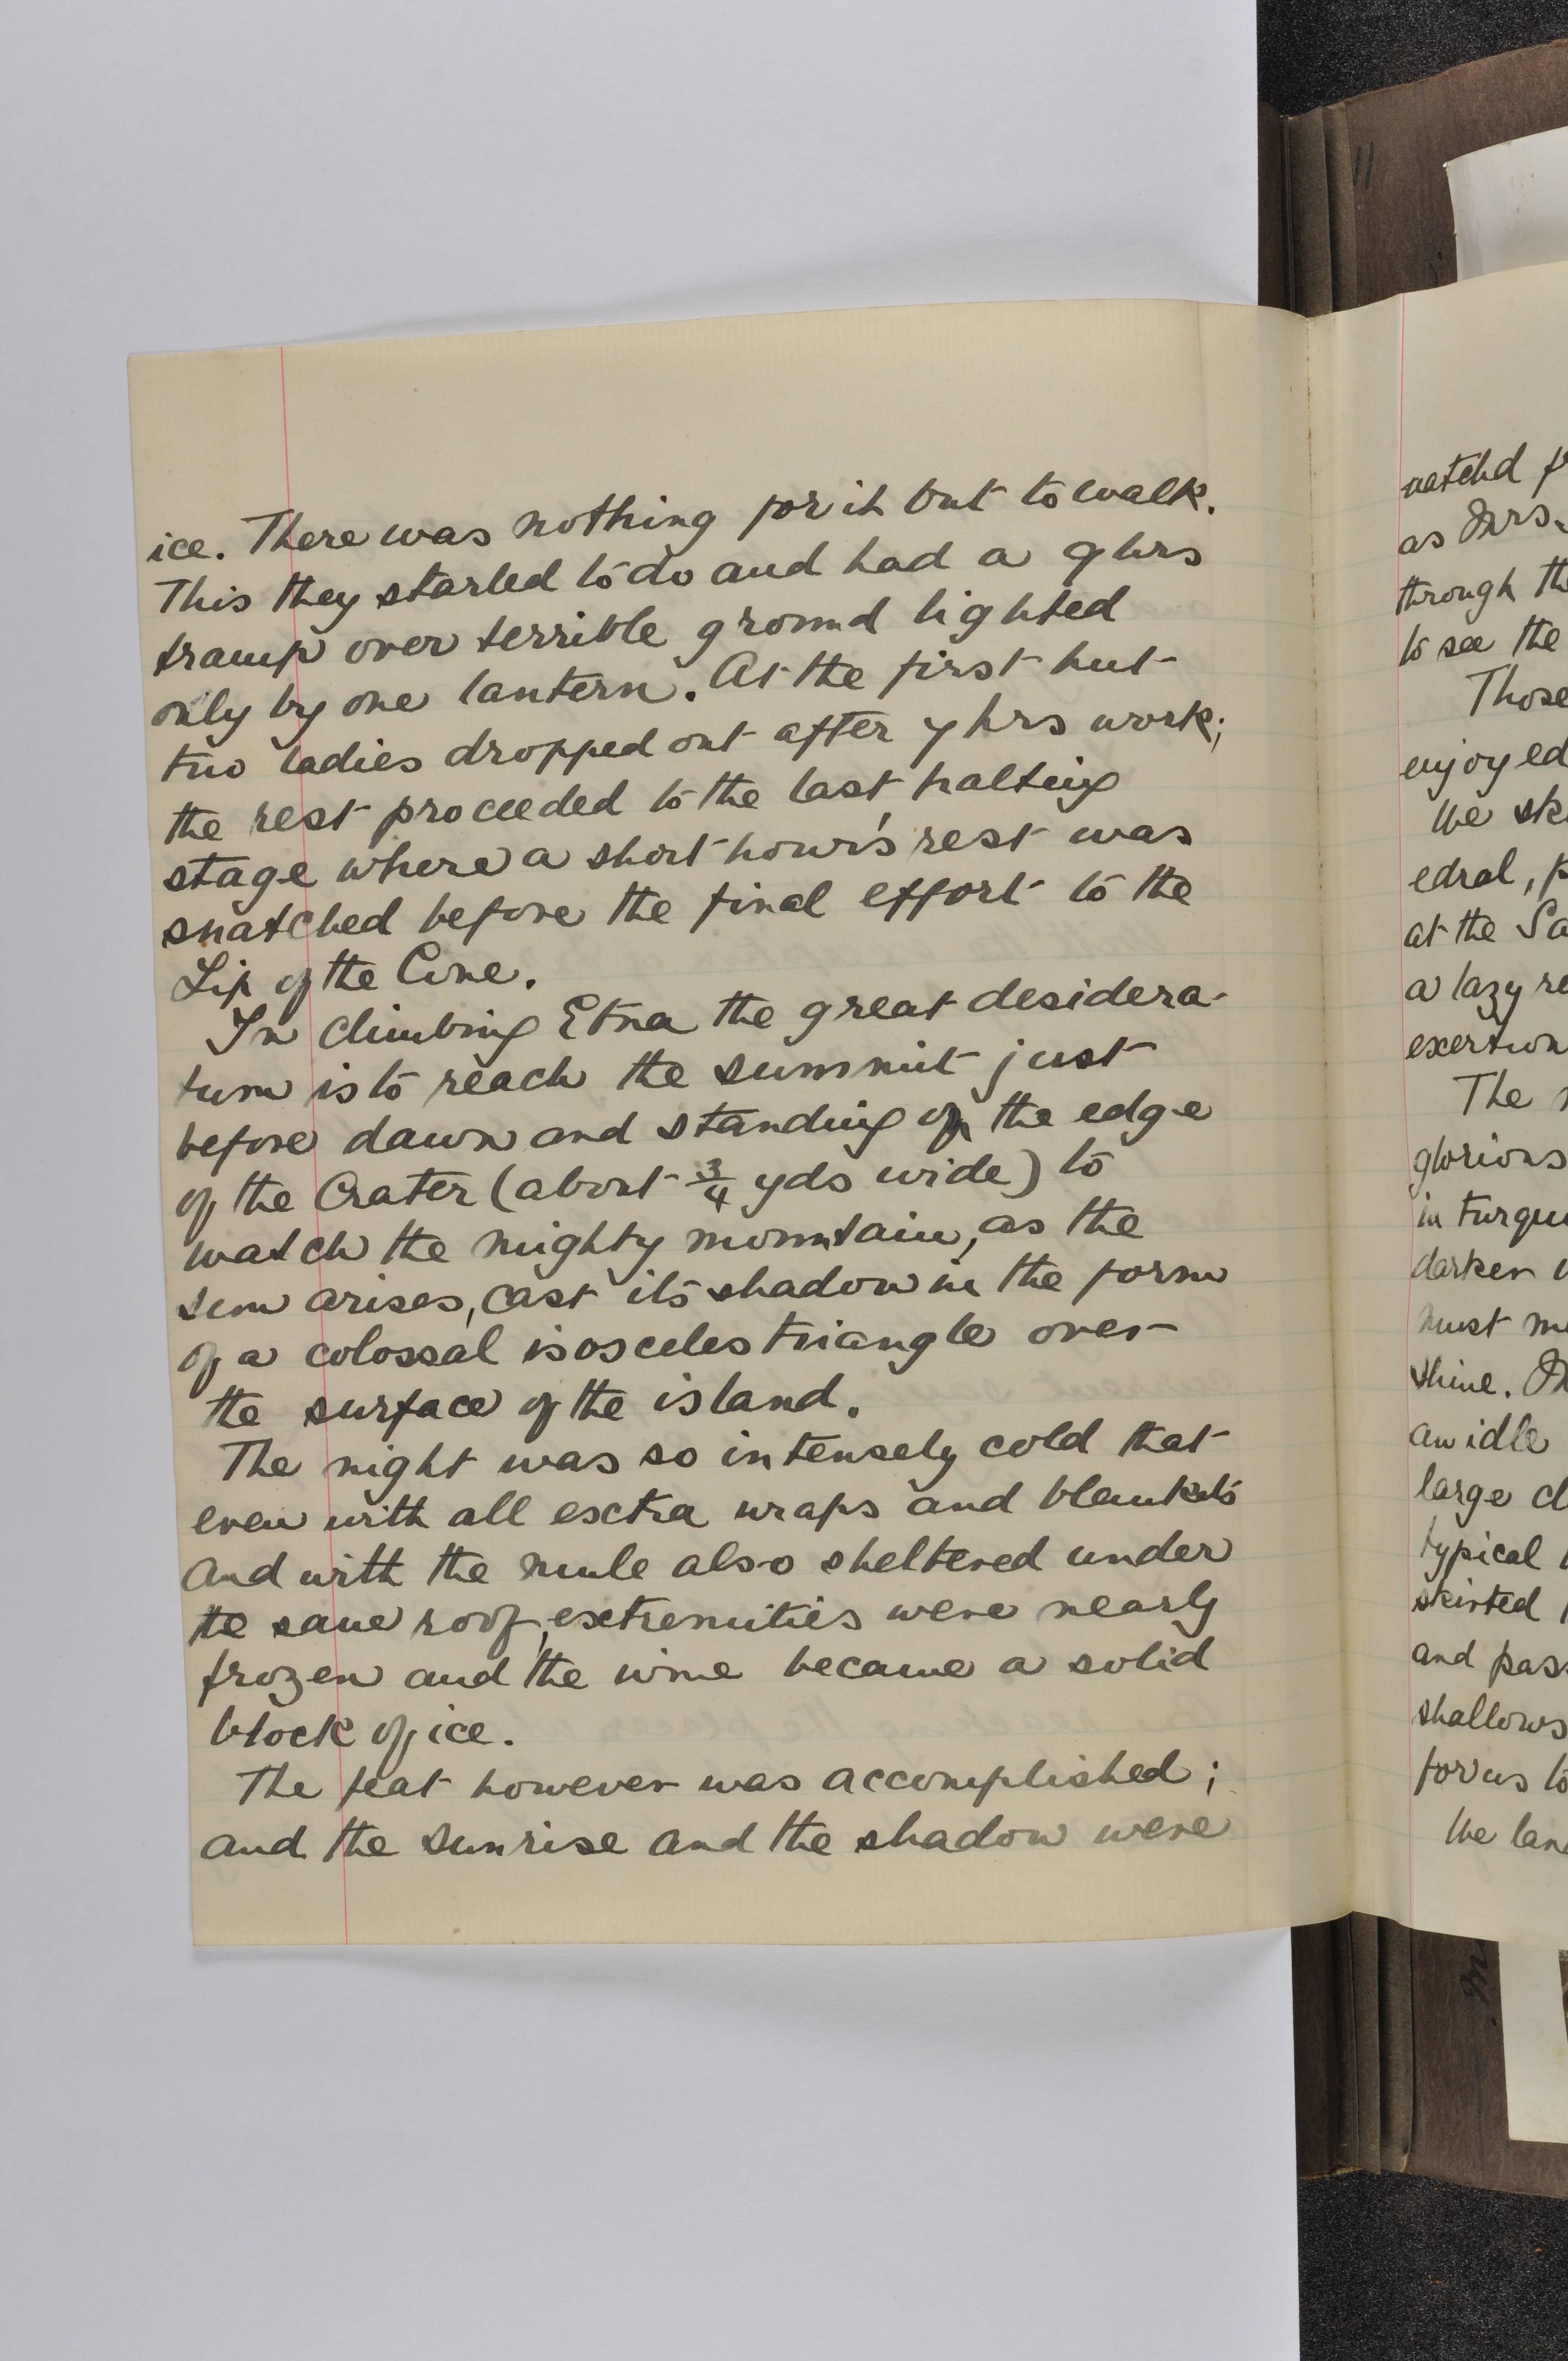 ice. There was nothing for it but to walk.
This they started to do and had a 9 hrs
tramp over terrible ground lighted
only by one lantern. At the first hut
two ladies dropped out after 7 hrs work;
the rest proceeded to the last halting
stage where a short hour's rest was
snatched before the final effort to the
Lip of the Cone.
In climbing Etna the great desidera-
tum is to reach the summit just
before dawn and standing on the edge
of the Crater (about 3/4 yds wide) to
watch the mighty mountain, as the
sun arises, cast its shadow in the form
of a colossal isosceles triangle over
the surface of the island.
The night was so intensely cold that
even with all extra wraps and blankets
and with the mule also sheltered under
the same roof, extremities were nearly
frozen and the wine became a solid
block of ice.
The feat however was accomplished;
and the sunrise and the shadow were
watchd
as Mrs.
through
to see the
Those
enjoyed
We
edral,
at the
a lazy
The
glorious
in
darker
must
shine.
an idle
large
typical
skirted
and
shallows
for us to
We